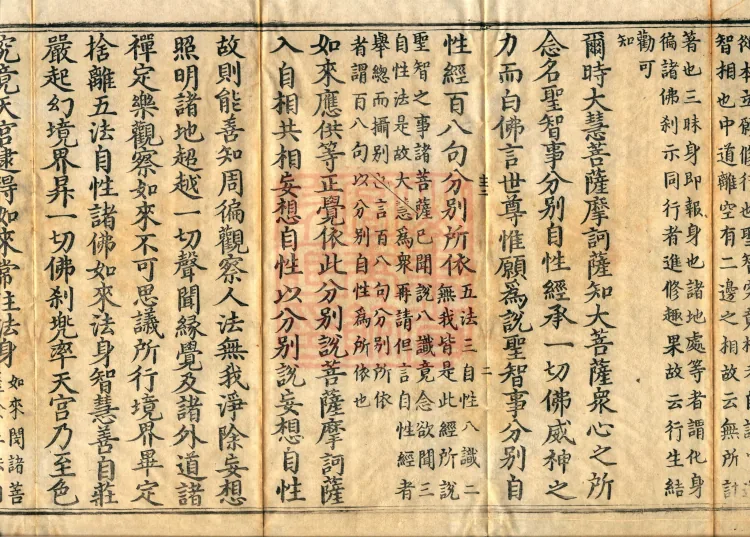 智相也中道離空有二邊之相故云無所計
著也三昧身即報身也諸地處等者謂化身
徧諸佛剎示同行者進修趣果故云行生結
勸可
知
爾時大慧菩薩摩訶薩知大菩薩衆心之所
念名聖智事分別自性經承一切佛威神之
力而白佛言世尊惟願爲說聖智事分別自
二
性經百八句分別所依五法三自性八識二
無我皆是此經所說
聖智之事諸菩薩已聞說八識竟念欲聞三
自性法是故大慧爲衆再請但言自性經者
舉總而攝別也言百八句分別所依
者謂百八句以分別自性爲所依也
如來應供等正覺依此分別說菩薩摩訶薩
入自相共相妄想自性以分別說妄想自性
故則能善知周徧觀察人法無我淨除妄想
照明諸地超越一切聲聞緣覺及諸外道諸
禪定樂觀察如來不可思議所行境界畢定
捨離五法自性諸佛如來法身智慧善自莊
嚴起幻境界昇一切佛剎兜率天宮乃至色
究竟天宮逮得如來常住法身如來閔諸菩